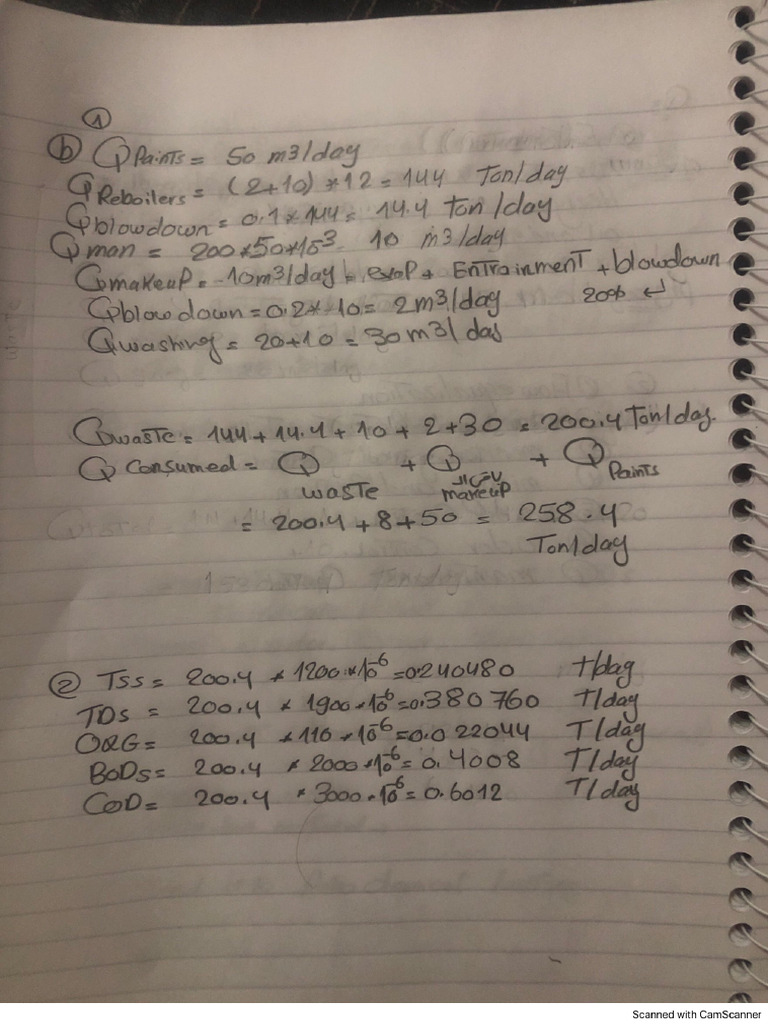 ①
ⓑ QPaints = 50 m3/day
QReboilers = (2+10) *12 = 144 Ton/day
Qblowdown = 0.1 * 144 = 14.4 Ton/day
Qman = 200*50*10^-3 10 m3/day
Qmakeup = 10m3/day = evap + Entrainment + blowdown
Qblowdown = 0.2* 10 = 2m3/day 20% ↵
Qwashing = 20+10 = 30m3/day
Qwaste = 144 + 14.4 + 10 + 2+30 = 200.4 Ton/day.
Q Consumed = Q waste + Q باقي ال makeup + Q Paints
= 200.4 + 8 + 50 = 258.4
Ton/day
② TSS = 200.4 * 1200 *10^-6 = 0.240480 T/day
TDS = 200.4 * 1900 *10^-6 = 0.380760 T/day
O&G = 200.4 * 110 *10^-6 = 0.022044 T/day
BOD5 = 200.4 * 2000 *10^-6 = 0.4008 T/day
COD = 200.4 * 3000 *10^-6 = 0.6012 T/day
Scanned with CamScanner